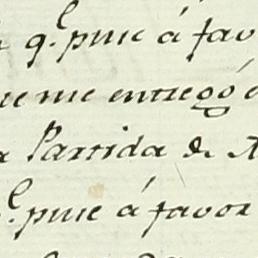 q.^e puse á fav
ue me entregó
Partida de
puse á favor